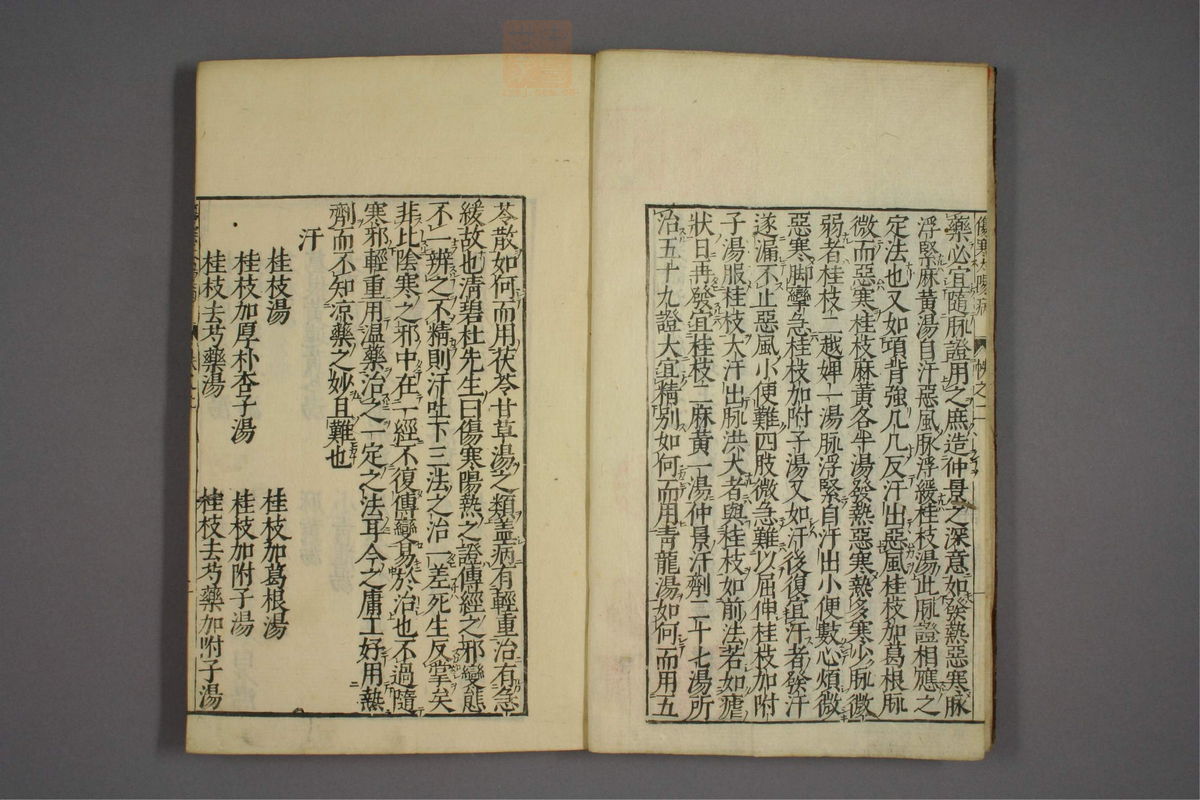 傷寒太陽病
藥必宜隨脉證用之庶造仲景之深意如發熱惡寒脉
浮緊麻黃湯自汗惡風脉浮緩桂枝湯此脉證相應之
定法也又如項背強几几反汗出惡風桂枝加葛根脉
微而惡寒桂枝麻黃各半湯發熱惡寒熱多寒少脉微
弱者桂枝二越婢一湯脉浮緊自汗出小便數心煩微
惡寒脚攣急桂枝加附子湯又如汗後復宜汗者發汗
遂漏不止惡風小便難四肢微急難以屈伸桂枝加附
子湯服桂枝大汗出脉洪大者與桂枝如前法若如瘧
狀日再發宜桂枝二麻黃一湯仲景汗劑二十七湯所
治五十九證大宜精別如何而用青龍湯如何而用五
苓散如何而用茯苓甘草湯之類盖病有輕重治有急
緩故也清碧杜先生曰傷寒陽熱之證傳經之邪變態
不一辨之不精則汗吐下三法之治一差死生反掌矣
非比陰寒之邪中在一經不復傳變易於治也不過隨
寒邪輕重用温藥治之一定之法耳今之庸工好用熱
劑而不知凉藥之妙且難也
汗
桂枝湯　桂枝加葛根湯
桂枝加厚朴杏子湯　桂枝加附子湯
桂枝去芍藥湯　桂枝去芍藥加附子湯